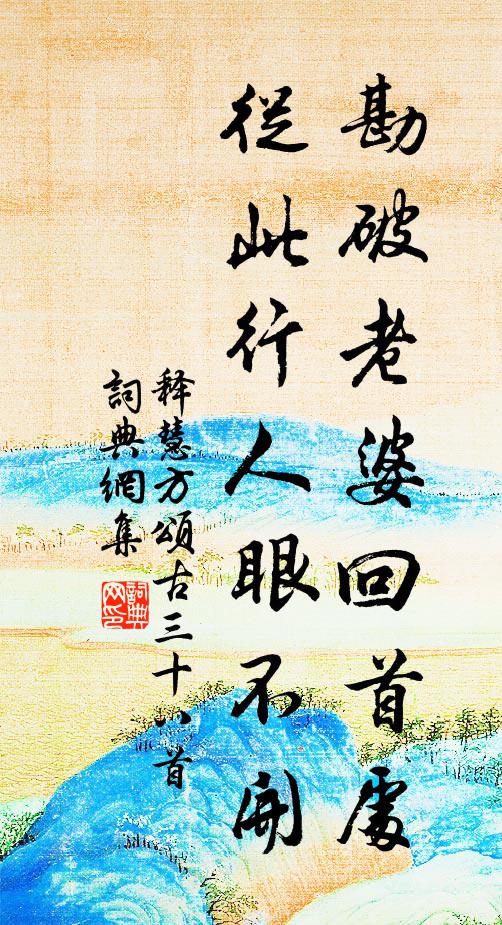 勘破老婆回首處
從此行人眼不開
释慧方頌古三十八首
詞典網集
詞典